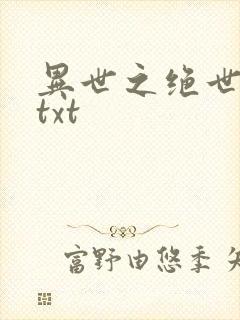 異世之绝世
txt
富野由悠季